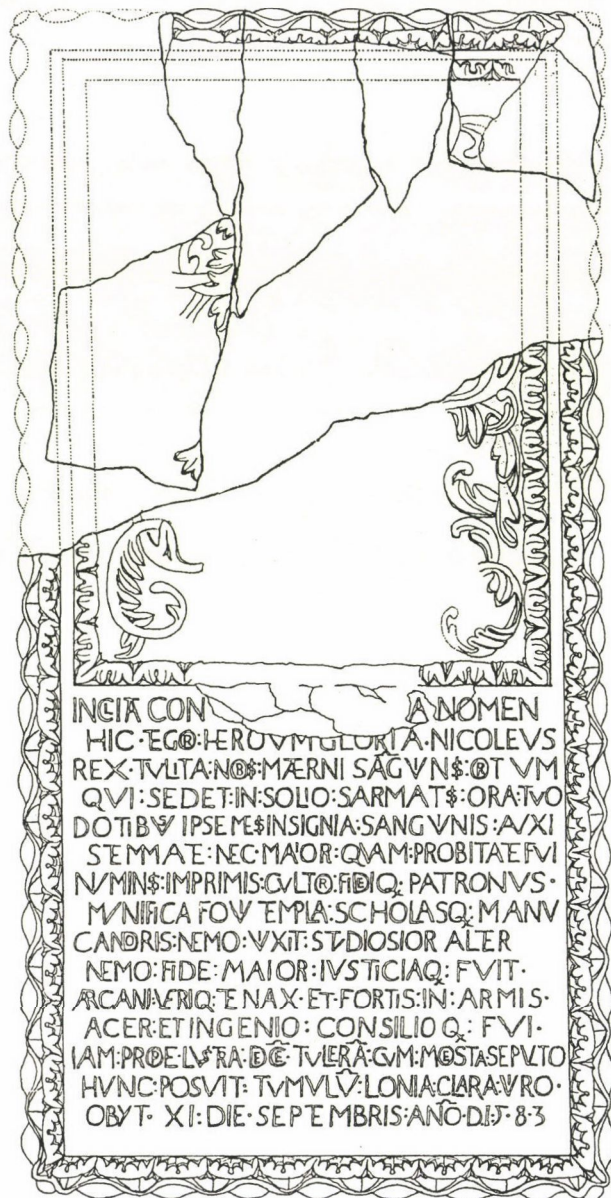 INCIA CON A NOMEN
HIC·TEGOR:HEROVM GLORIA·NICOLEVS
REX·TVLIT A·NORIS·MATERNI SAGVNIS:ORTVM
QVI:SEDET:IN:SOLIO:SARMATIS:ORA:TVO
DOTIBVS IPSE MEIS INSIGNIA·SANGVNIS:AVXI
STEMMATE:NEC·MAIOR:QVAM:PROBITATE FVI
NVMINIS:IMPRIMIS:CVLTOR:FIDEIQ: PATRONVS·
MVNIFICA FOVI TEMPLA:SCHOLASQ: MANV
CANDORIS:NEMO:VIXIT:STVDIOSIOR ALTER
NEMO:FIDE:MAIOR:IVSTICIAQ: FVIT·
ARCANI:VERIQ:TENAX·ET·FORTIS:IN:ARMIS·
ACER:ET INGENIO: CONSILIOQ: FVI·
IAM:PROPE LVSTRA:DECĒ:TVLERĀ:CVM:MOESTA SEPVLTO
HVNC·POSVIT:TVMVLV̂:LONIA:CLARA:VIRO·
OBYT· XI:DIE·SEPTEMBRIS:ANÕ·D:1583